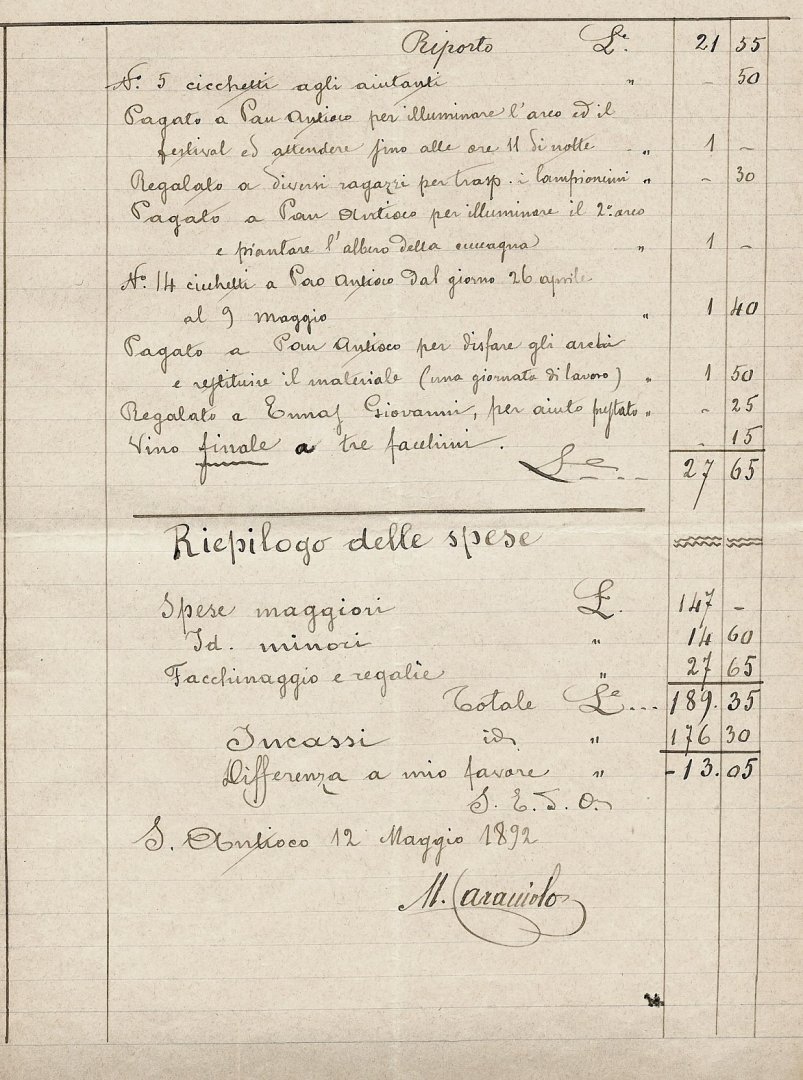 Riporto £. 21 55
No. 5 cicchetti agli aiutanti " - 50
Pagato a Pau Antioco per illuminare l'arco ed il
festival ed attendere fino alle ore 11 di notte " 1 -
Regalato a diversi ragazzi per trasp. i lampioncini " - 30
Pagato a Pau Antioco per illuminare il 2° arco
e piantare l'albero della cuccagna " 1 -
No. 14 cicchetti a Pao Antioco dal giorno 26 aprile
al 9 maggio " 1 40
Pagato a Pau Antioco per disfare gli archi
e restituire il materiale (una giornata di lavoro) " 1 50
Regalato a Ennas Giovanni, per aiuto prestato " - 25
Vino finale a tre facchini. - 15
£e... 27 65
Riepilogo delle spese
Spese maggiori £. 147 -
Id. minori " 14 60
Facchinaggio e regalie " 27 65
Totale £e... 189. 35
Incassi id. " 176 30
Differenza a mio favore " - 13. 05
S. E. & O.
S. Antioco 12 Maggio 1892
M. Caracciolo